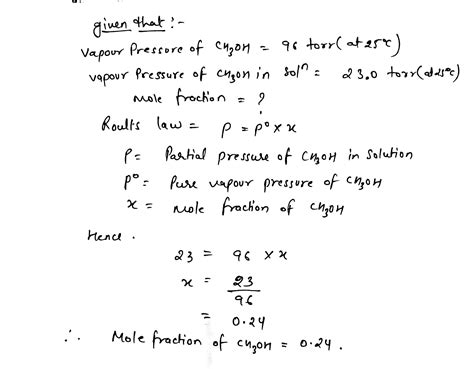 given that :-
Vapour Pressure of CH3OH = 96 torr (at 25°C)
vapour Pressure of CH3OH in Solⁿ = 23.0 torr (at 25°C)
mole fraction = ?
Roults law = P = P° x x
P = Partial pressure of CH3OH in Solution
P° = Pure vapour pressure of CH3OH
x = mole fraction of CH3OH
Hence .
23 = 96 x x
x = 23
96
= 0.24
∴ Mole fraction of CH3OH = 0.24 .